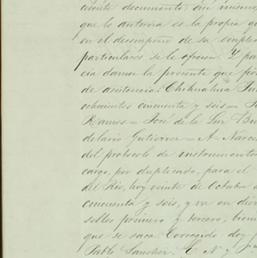 ciente documento, sin
que lo autoriza es la propia que
en el desempeño de su empleo
particulares se le ofrecen. Y pa
cia damos la presente que
de asistencia. Chihuahua
ochocientos cincuenta y seis =
Ramos = José de la Luz
delario Gutierrez = A Narcis
del protocolo de instrumentos
cargo, por duplicado, para el
del Rio, hoy veinte de Octubre
cincuenta y seis, y va en dos
sellos primero y tercero,
que se saca. Corregido doy
Pablo Sanchez. E. N. y